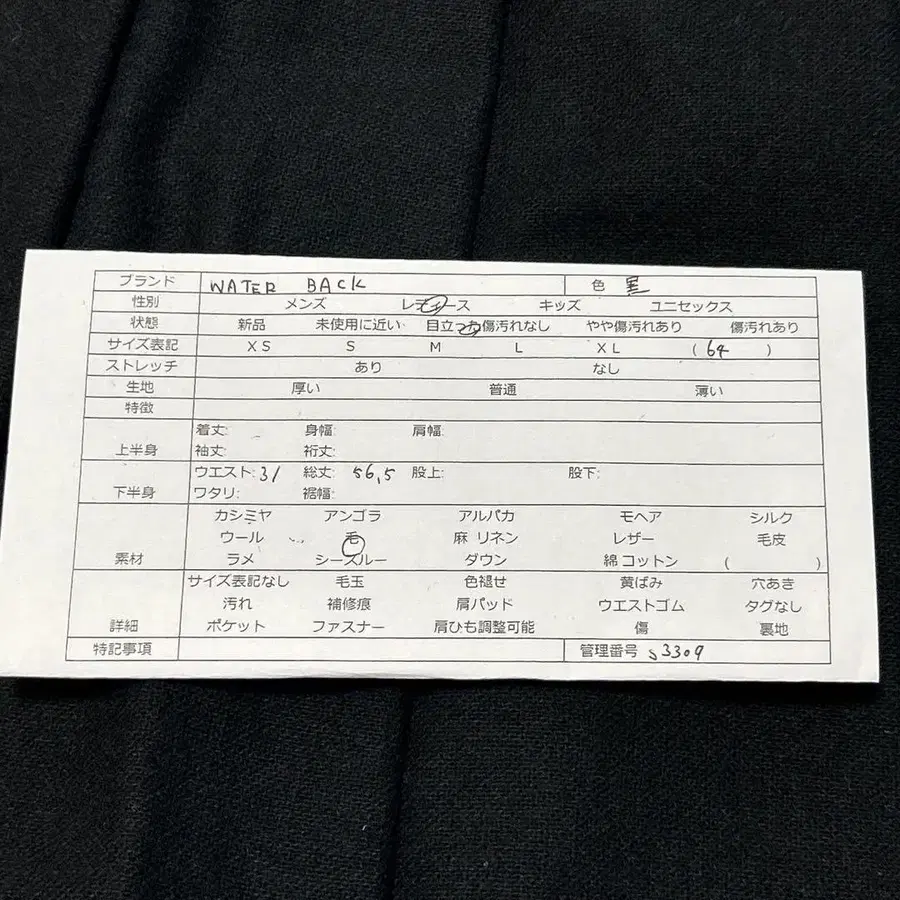 ブランド WATER BACK 色 黒
性別 メンズ レディース キッズ ユニセックス
状態 新品 未使用に近い 目立った傷汚れなし やや傷汚れあり 傷汚れあり
サイズ表記 XS S M L XL ( 64 )
ストレッチ あり なし
生地 厚い 普通 薄い
特徴
上半身 着丈: 身幅: 肩幅:
袖丈: 裄丈:
下半身 ウエスト: 31 総丈: 56,5 股上: 股下:
ワタリ: 裾幅:
素材 カシミヤ アンゴラ アルパカ モヘア シルク
ウール 毛 麻 リネン レザー 毛皮
ラメ シースルー ダウン 綿 コットン ( )
詳細 サイズ表記なし 毛玉 色褪せ 黄ばみ 穴あき
汚れ 補修痕 肩パッド ウエストゴム タグなし
ポケット ファスナー 肩ひも調整可能 傷 裏地
特記事項 管理番号 s3309